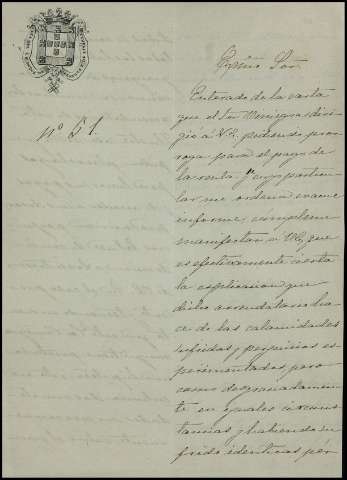 Exmo Sor
nº 51.
Enterado de la carta
que el Sor Meneyra diri-
gió á V.E. pidiendo prór-
roga para el pago de
la renta y cuyo particu-
lar me ordena evacue
informe, cumpleme
manifestar á V.E. que
es efectivamente cierta
la esplicacion que
dicho arrendatario ha-
ce de las calamidades
sufridas y perjuicios es-
perimentados pero
como desgraciadamen-
te en iguales circuns-
tancias y habiendo su-
frido identicas pér-